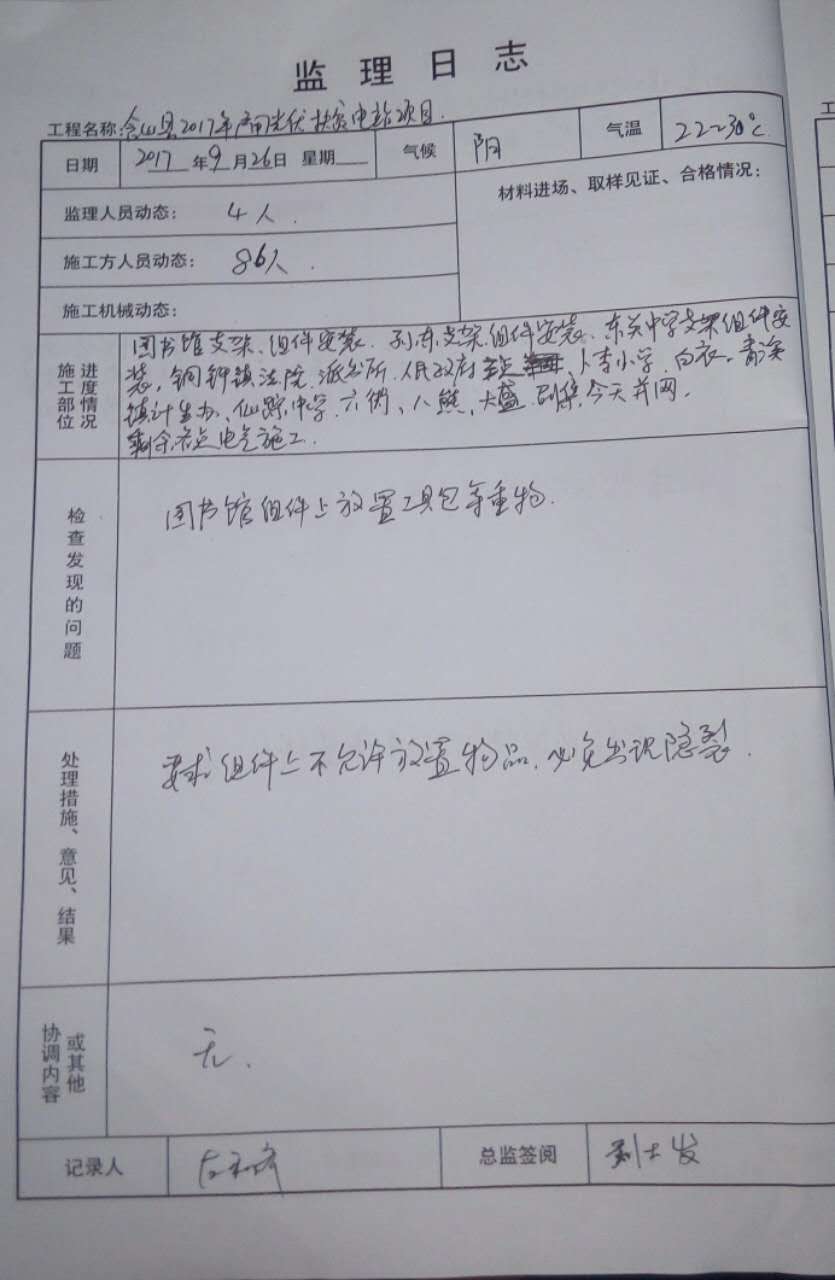 监理日志
工程名称:含山县2017年 光伏扶贫电站项目.
日期 2017年9月26日 星期 气候 阴 气温 22~30℃
材料进场、取样见证、合格情况:
监理人员动态: 4人.
施工方人员动态: 86人.
施工机械动态:
施工部位 进度情况
图书馆支架、组件安装. 支架、组件安装、东关中学支架组件安
装, 铜 镇法院、派出所、人民政府 小学、白衣、清溪
镇计生办、仙踪中学、六衖、八熊、大盛 今天并网.
剩余各点电气施工.
检查发现的问题
图书馆组件上放置工具包等重物.
处理措施、意见、结果
要求组件上不允许放置物品, 必免出现隐裂.
协调内容 或其他
无.
记录人 总监签阅